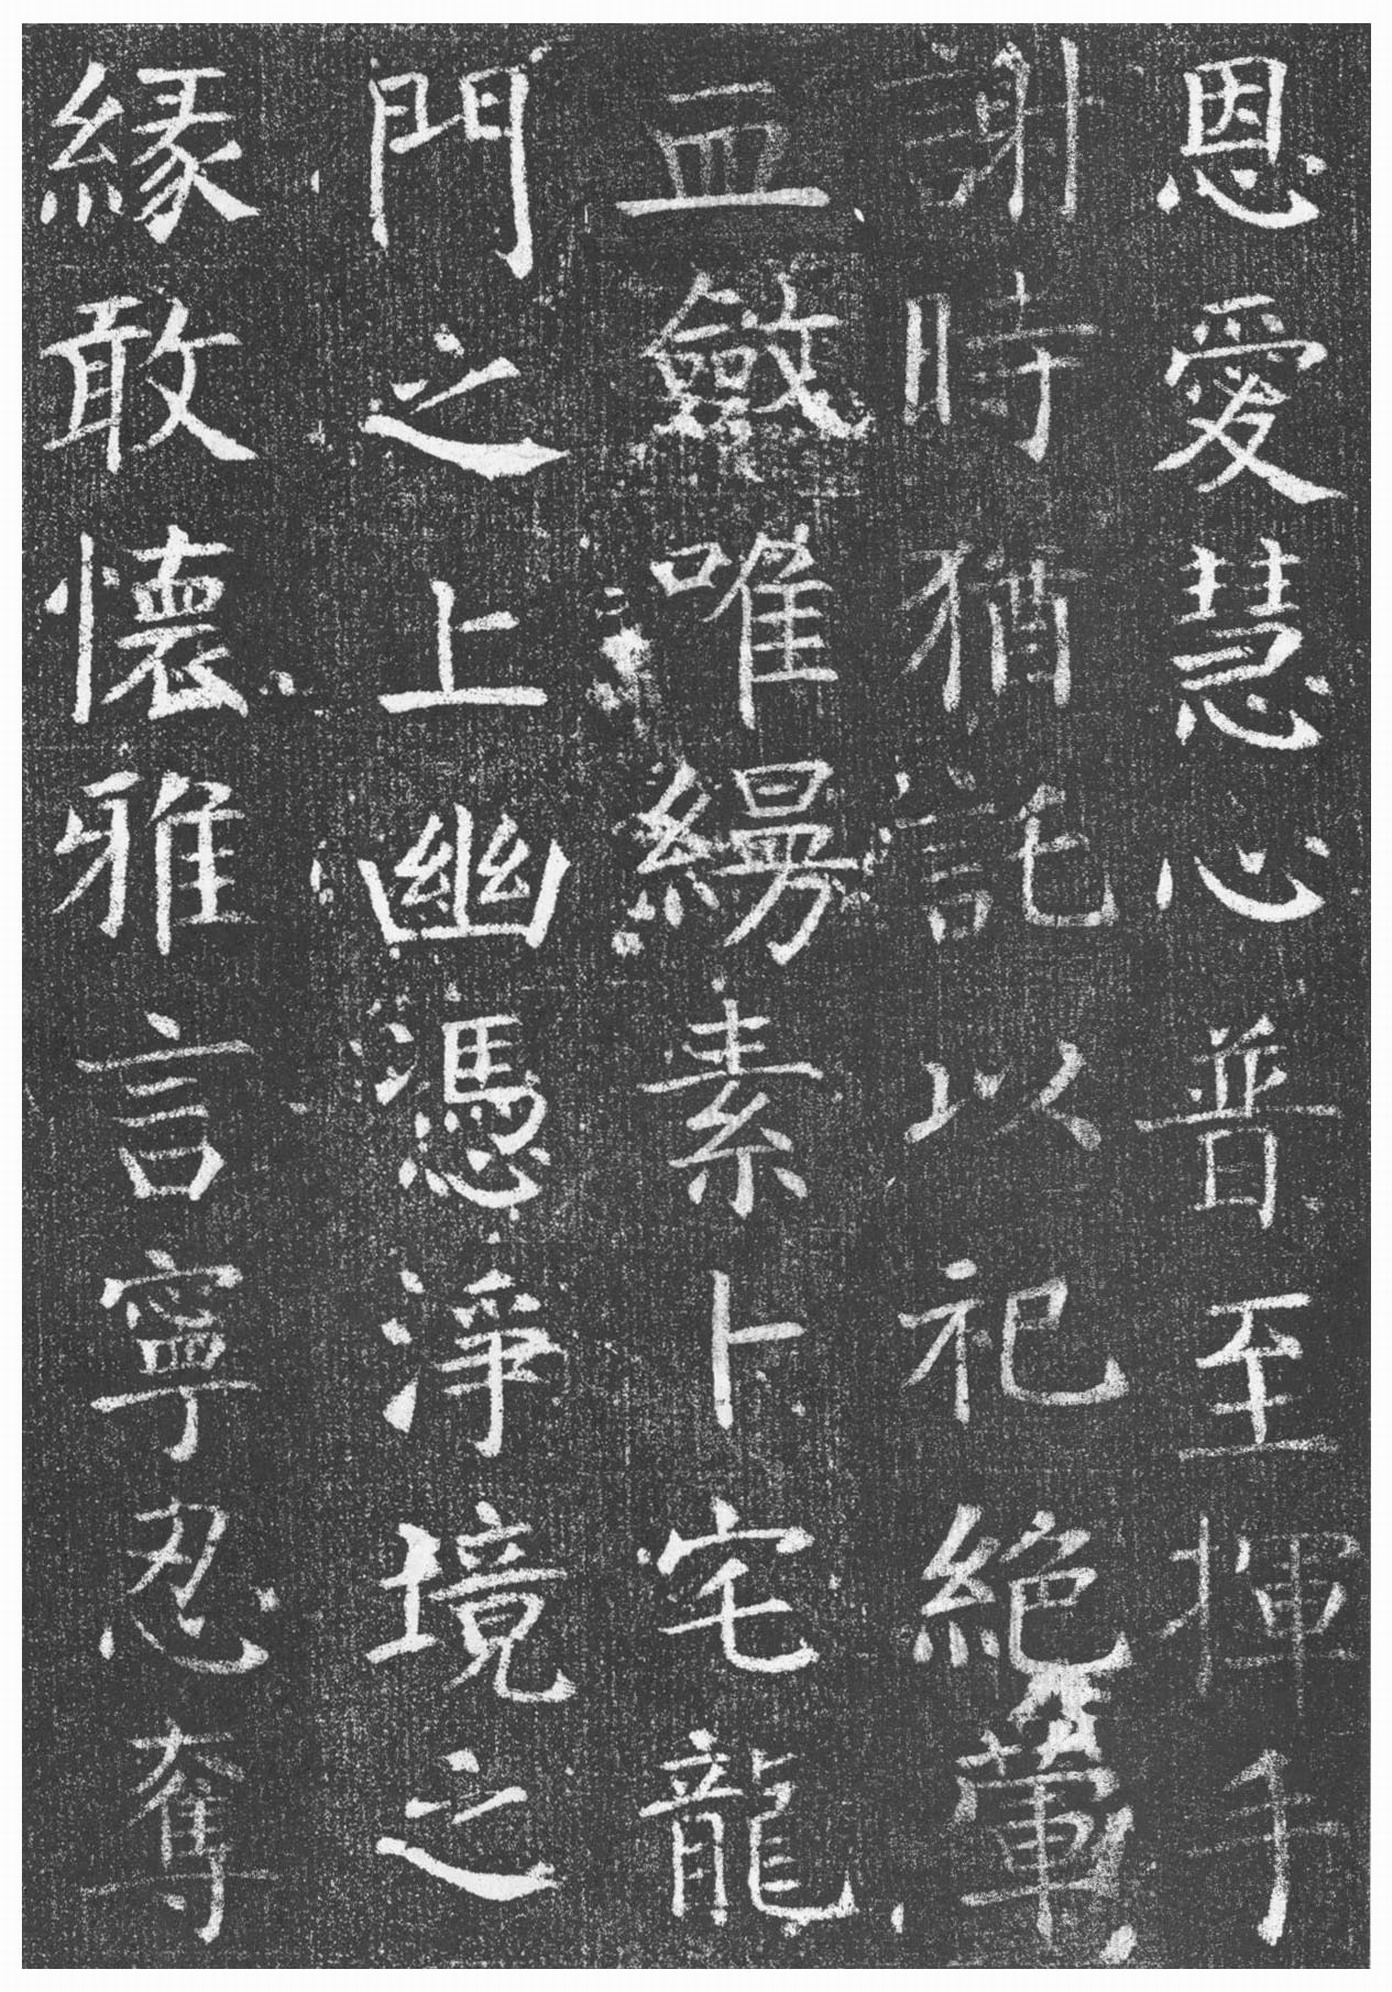 恩愛慧心普至揮手
謝時猶託以祀絶葷
血斂唯縵素卜宅龍
門之上幽憑淨境之
緣敢懷雅言寧忍奪